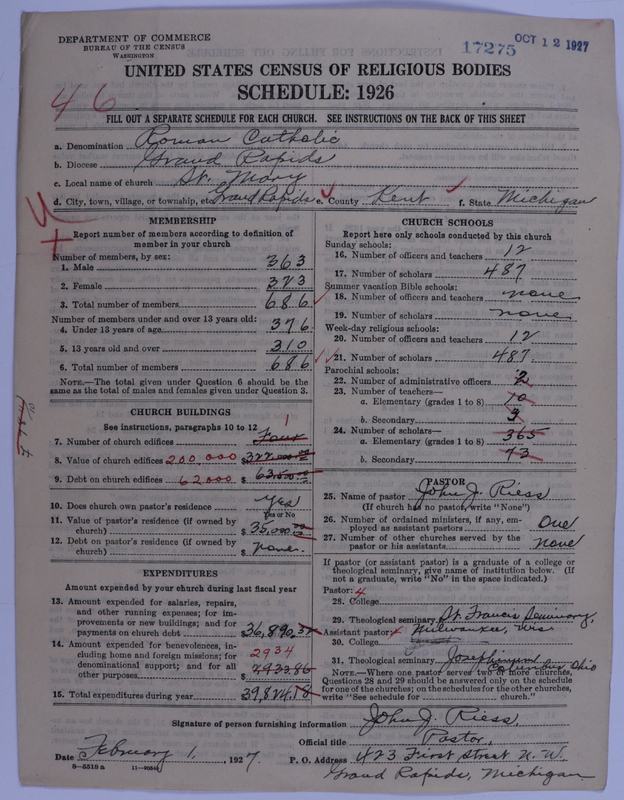 DEPARTMENT OF COMMERCE
BUREAU OF THE CENSUS
WASHINGTON
17275 OCT 12 1927
UNITED STATES CENSUS OF RELIGIOUS BODIES
SCHEDULE: 1926
46
FILL OUT A SEPARATE SCHEDULE FOR EACH CHURCH. SEE INSTRUCTIONS ON THE BACK OF THIS SHEET
a. Denomination Roman Catholic
b. Diocese Grand Rapids
c. Local name of church St. Mary
d. City, town, village, or township, etc. Grand Rapids e. County Kent f. State Michigan
MEMBERSHIP
Report number of members according to definition of
member in your church
Number of members, by sex:
1. Male 363
2. Female 323
3. Total number of members 686
Number of members under and over 13 years old:
4. Under 13 years of age 376
5. 13 years old and over 310
6. Total number of members 686
NOTE.—The total given under Question 6 should be the
same as the total of males and females given under Question 3.
CHURCH BUILDINGS
See instructions, paragraphs 10 to 12
1
7. Number of church edifices Four
8. Value of church edifices 200,000 $ 322,000.00
9. Debt on church edifices 62000 $ 63,500.00
10. Does church own pastor's residence Yes
Yes or No
11. Value of pastor's residence (if owned by
church) $ 35,000.00
12. Debt on pastor's residence (if owned by
church) $ none.
EXPENDITURES
Amount expended by your church during last fiscal year
13. Amount expended for salaries, repairs,
and other running expenses; for im-
provements or new buildings; and for
payments on church debt $ 36,890.32
14. Amount expended for benevolences, in-
cluding home and foreign missions; for 2934
denominational support; and for all
other purposes $ 2933.86
15. Total expenditures during year $ 39,824.18
CHURCH SCHOOLS
Report here only schools conducted by this church
Sunday schools:
16. Number of officers and teachers 12
17. Number of scholars 487
Summer vacation Bible schools:
18. Number of officers and teachers none
19. Number of scholars none
Week-day religious schools:
20. Number of officers and teachers 12
21. Number of scholars 487.
Parochial schools:
22. Number of administrative officers 2
23. Number of teachers—
a. Elementary (grades 1 to 8) 10
b. Secondary 3
24. Number of scholars—
a. Elementary (grades 1 to 8) 365
b. Secondary 73
PASTOR
25. Name of pastor John J. Riess
(If church has no pastor, write "None")
26. Number of ordained ministers, if any, em-
ployed as assistant pastors One
27. Number of other churches served by the
pastor or his assistants none
If pastor (or assistant pastor) is a graduate of a college or
theological seminary, give name of institution below. (If
not a graduate, write "No" in the space indicated.)
Pastor:
28. College
29. Theological seminary St. Francis Seminary,
Assistant pastor: Milwaukee, Wis.
30. College
31. Theological seminary Josephinum
Columbus Ohio
NOTE.—Where one pastor serves two or more churches,
Questions 28 and 29 should be answered only on the schedule
for one of the churches; on the schedules for the other churches,
write "See schedule for church."
Signature of person furnishing information John J. Riess,
Official title Pastor,
Date February 1, 1927. P. O. Address 423 First Street N. W.
8—5518 a Grand Rapids, Michigan.